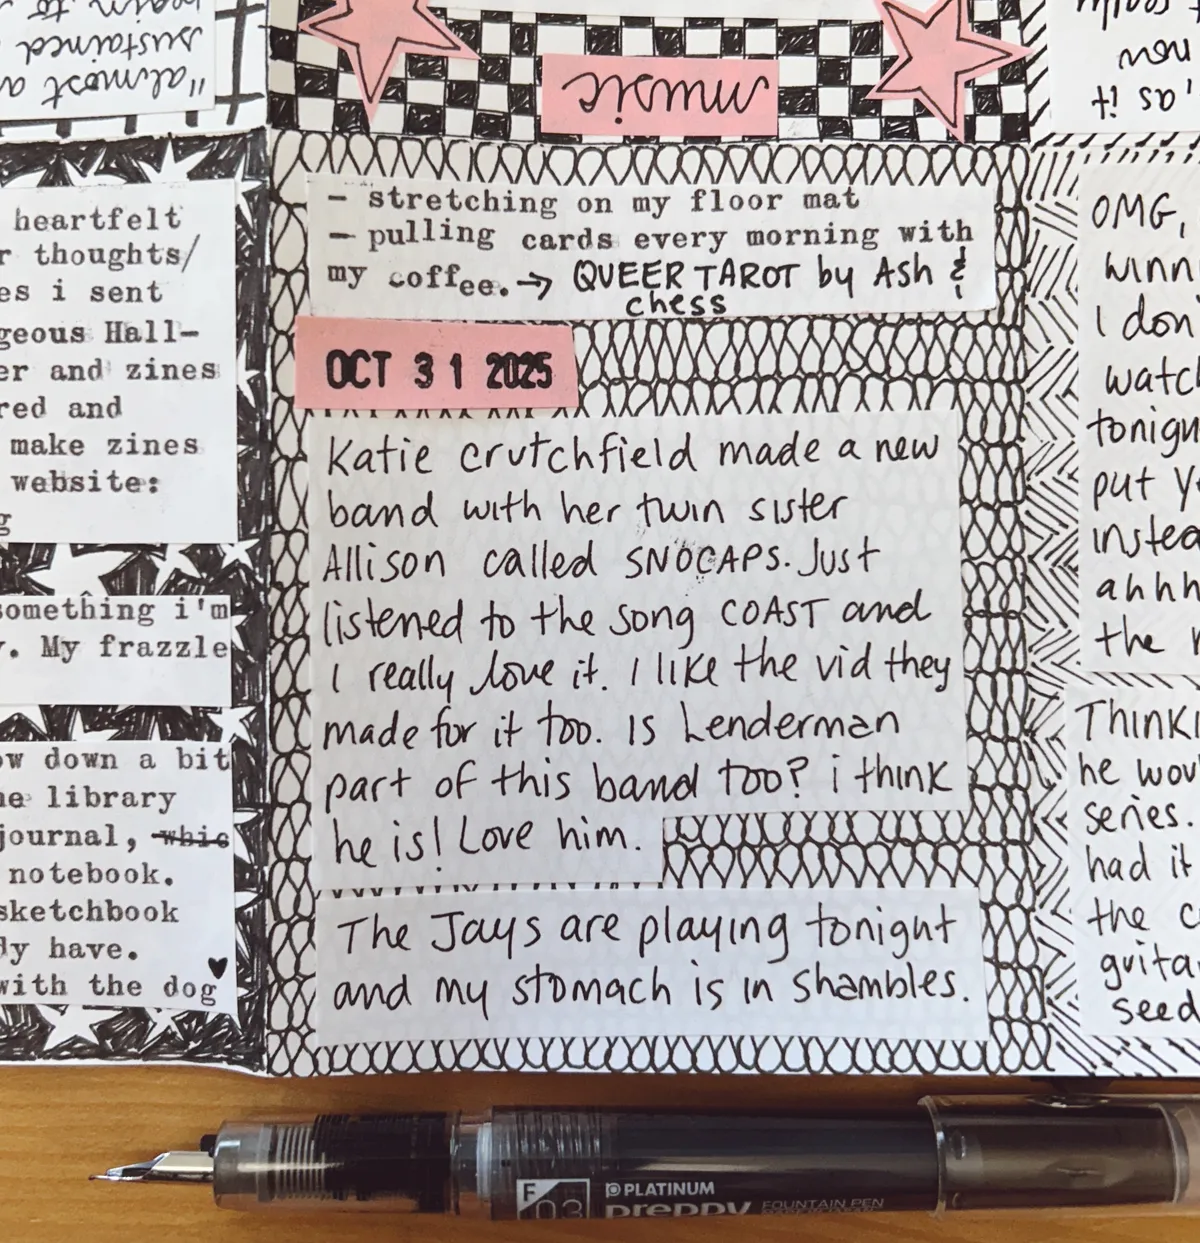 "almost a
sustained
begin to
music
really
now
, as it
heartfelt
r thoughts/
es i sent
geous Hall-
er and zines
red and
make zines
website:
g
something i'm
y. My frazzle
ow down a bit
he library
journal, whic
notebook.
sketchbook
ly have.
with the dog
- stretching on my floor mat
- pulling cards every morning with
my coffee. → QUEER TAROT by Ash &
chess
OCT 31 2025
Katie Crutchfield made a new
band with her twin sister
Allison called SNOCAPS. Just
listened to the song COAST and
I really love it. I like the vid they
made for it too. Is Lenderman
part of this band too? i think
he is! Love him.
The Jays are playing tonight
and my stomach is in shambles.
OMG,
winni
I don'
watch
tonigh
put Y
instea
ahhh
the
Thinki
he woul
series.
had it
the c
guitar
seed
F
03
PLATINUM
preppy FOUNTAIN PEN